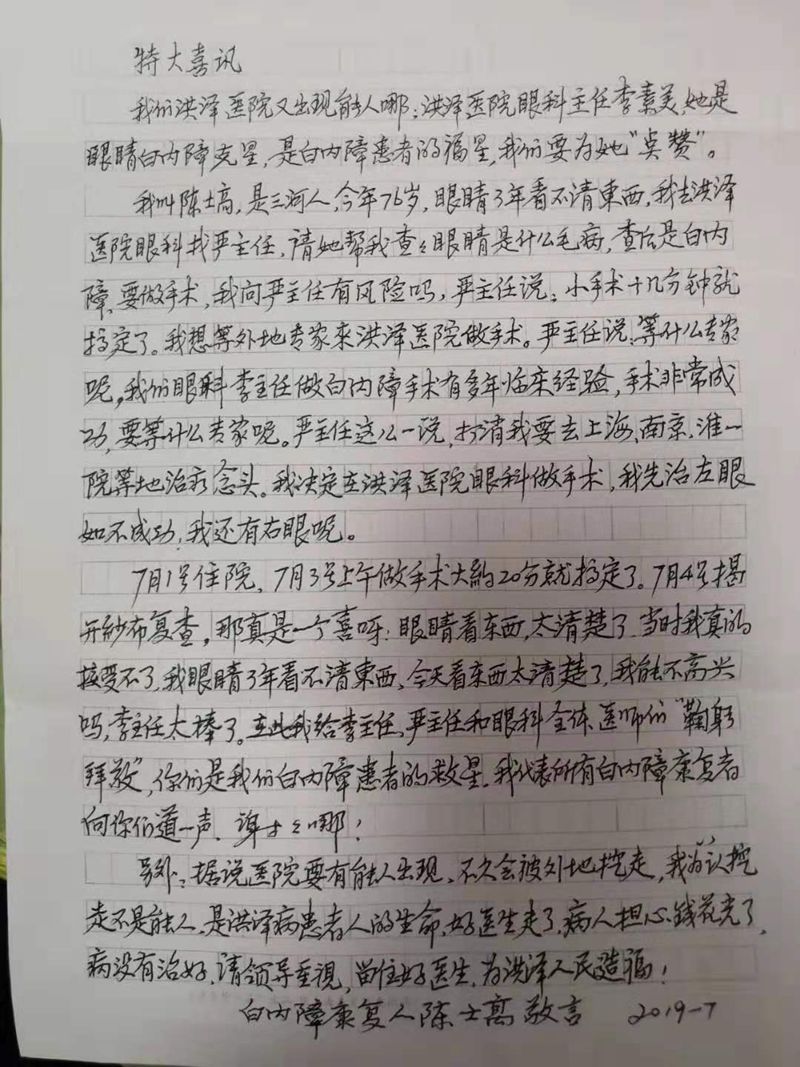 特大喜讯
我们洪泽医院又出现能人哪：洪泽医院眼科主任李素美，她是
眼睛白内障克星，是白内障患者的福星，我们要为她“点赞”。
我叫陈士高，是三河人，今年76岁，眼睛3年看不清東西，我去洪泽
医院眼科找严主任，请她帮我查々眼睛是什么毛病，查后是白内
障、要做手术，我问严主任有风险吗，严主任说：小手术十几分钟就
搞定了。我想等外地专家来洪泽医院做手术。严主任说：等什么专家
呢，我们眼科李主任做白内障手术有多年临床经验，手术非常成
功，要等什么专家呢。严主任这么一说，打消我要去上海、南京、淮一
院等地治疗念头。我决定在洪泽医院眼科做手术，我先治左眼
如不成功，我还有右眼呢。
7月1号住院，7月3号上午做手术大約20分就搞定了。7月4号揭
开紗布复查，那真是一个喜呀：眼睛看东西，太清楚了，当时我真的
接受不了，我眼睛3年看不清東西、今天看东西太清楚了，我能不高兴
吗，李主任太棒了。在此我给李主任、严主任和眼科全体医师们“鞠躬
拜敬”，你们是我们白内障患者的救星。我代表所有白内障康复者
向你们道一声、谢々哪！
另外：据说医院要有能人出现、不久会被外地挖走，我为认挖
走不是能人，是洪泽病患者人的生命，好医生走了，病人担心钱花完了，
病没有治好，请领导重視，留住好医生，为洪泽人民造福！
白内障康复人陈士高敬言 2019-7